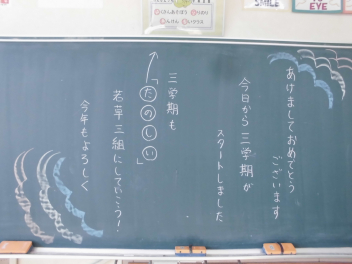 あけましておめでとう
ございます
今日から三学期が
スタートしました
三学期も
「たのしい」
若草三組にしていこう!
今年もよろしく
EYE